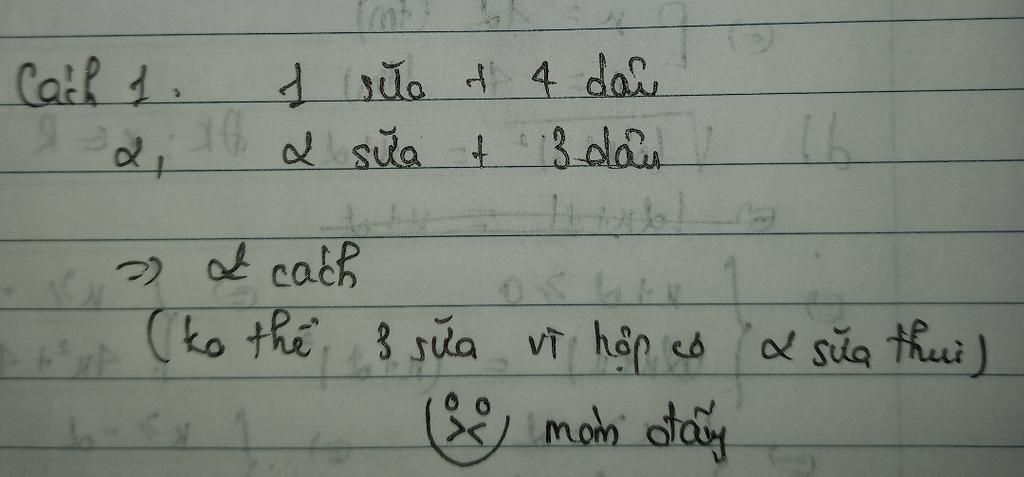 Cách 1. 1 sữa + 4 dâu
2, 2 sữa + 3 dâu
=> 2 cách
(ko thể 3 sữa vì hộp có 2 sữa thui)
mom đấy